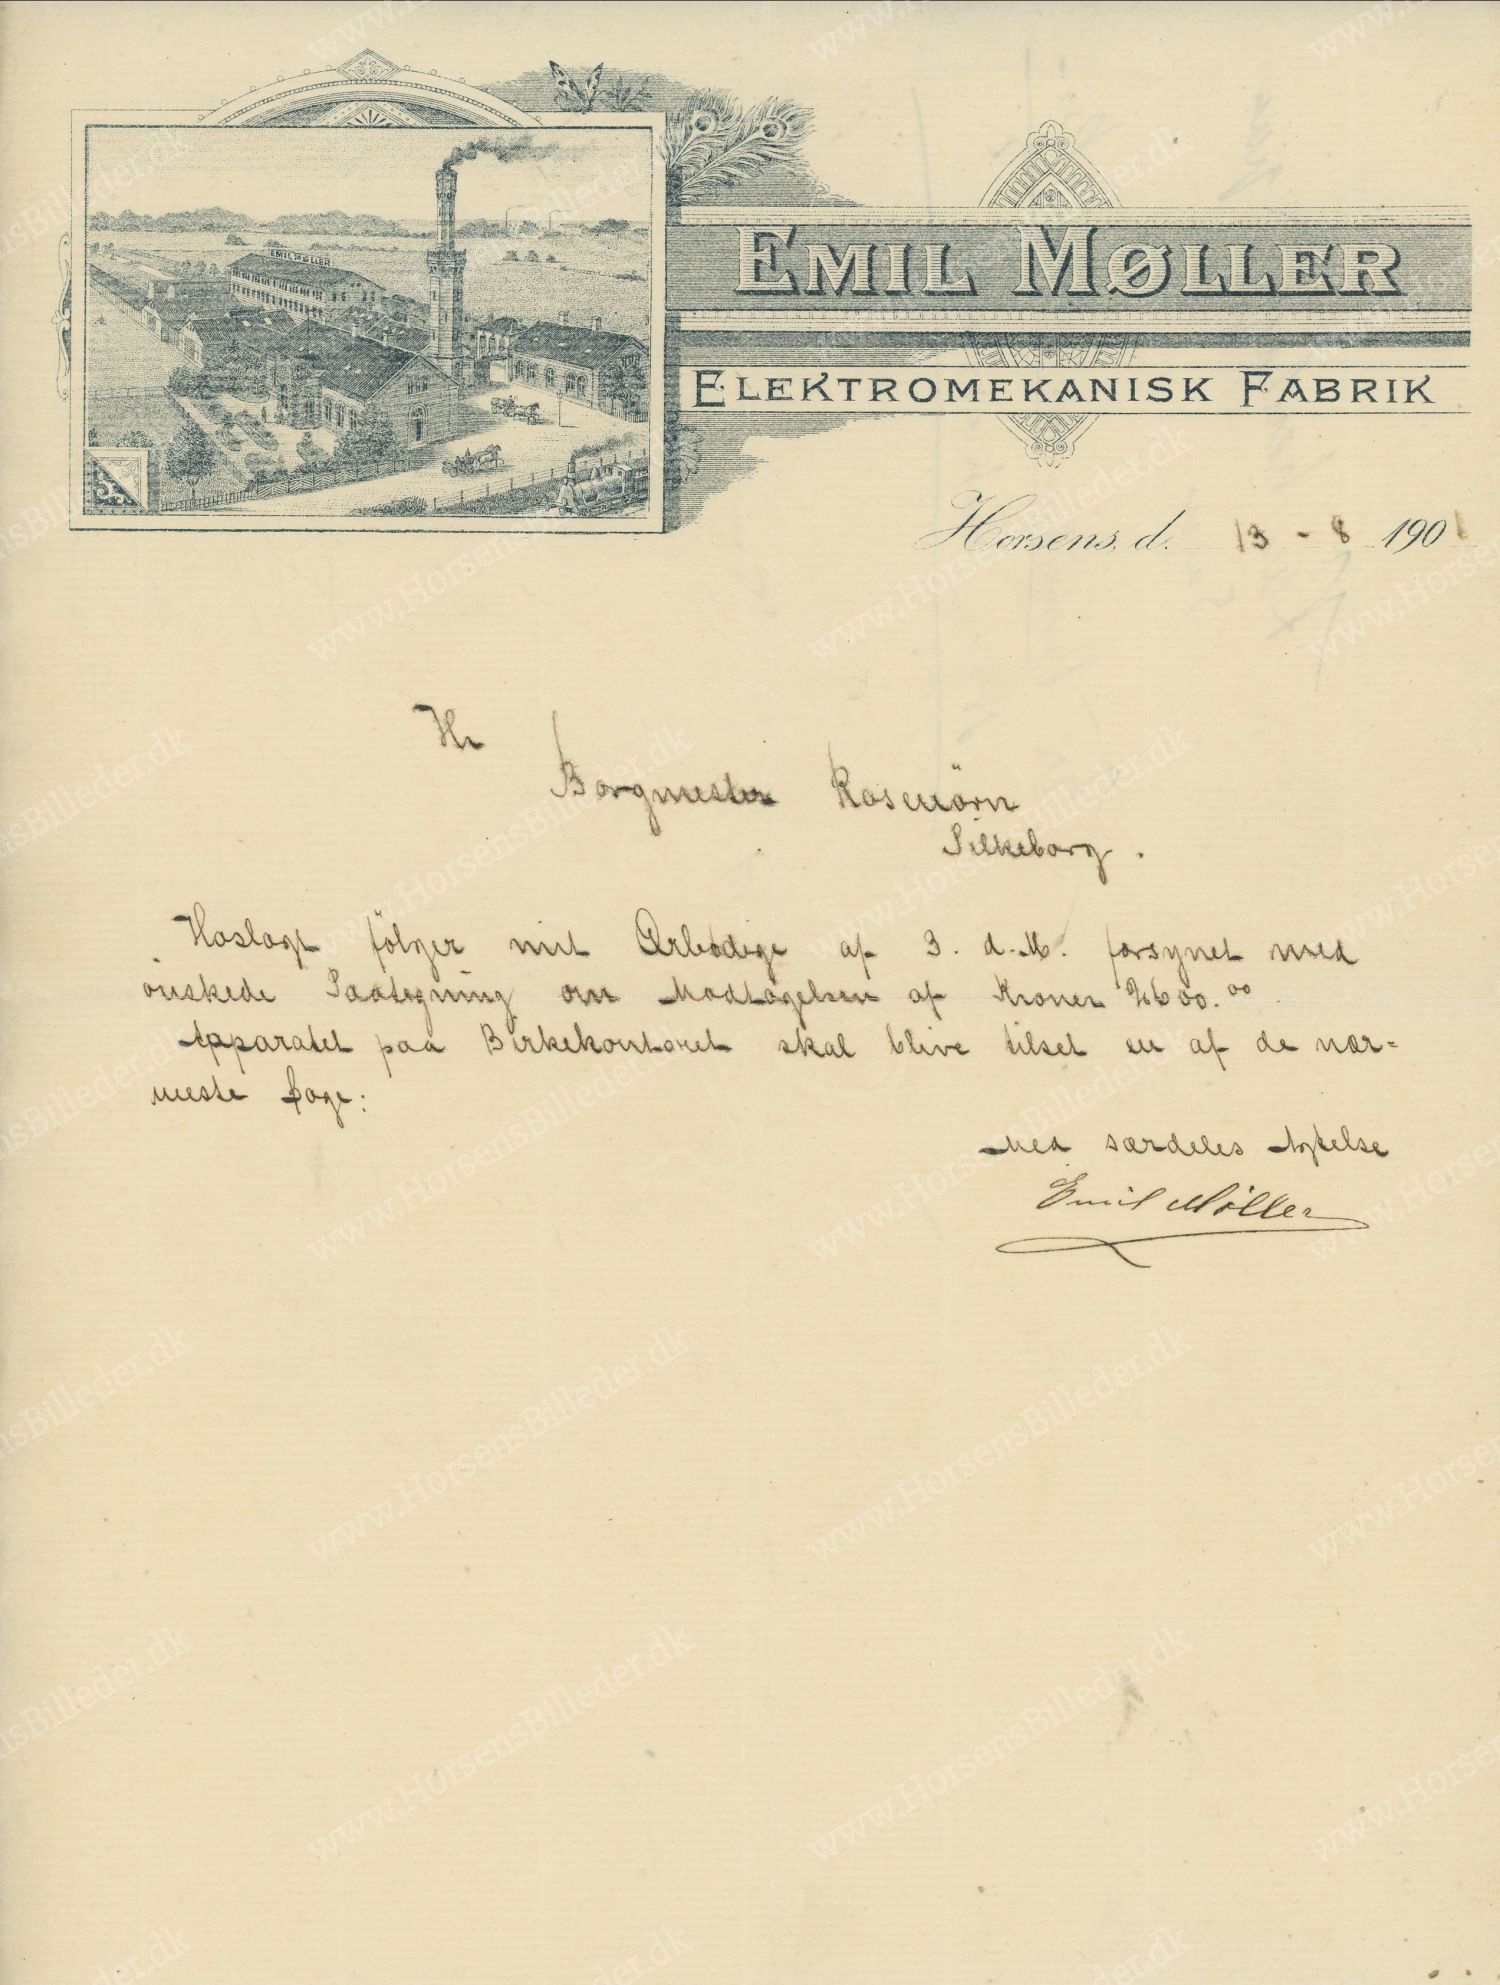 EMIL MØLLER
EMIL MØLLER
ELEKTROMEKANISK FABRIK
Horsens, d. 13 - 8 1901
Hr
Borgmester Rosenörn
Silkeborg.
Hoslagt fölger mit Ærbödige af 3. d. M. forsynet med
önskede Paategning om Modtagelsen af Kroner 2600.00
Apparatet paa Birkekontoret skal blive tilset en af de nær=
meste Dage:
Med særdeles Agtelse
Emil Møller
www.HorsensBilleder.dk